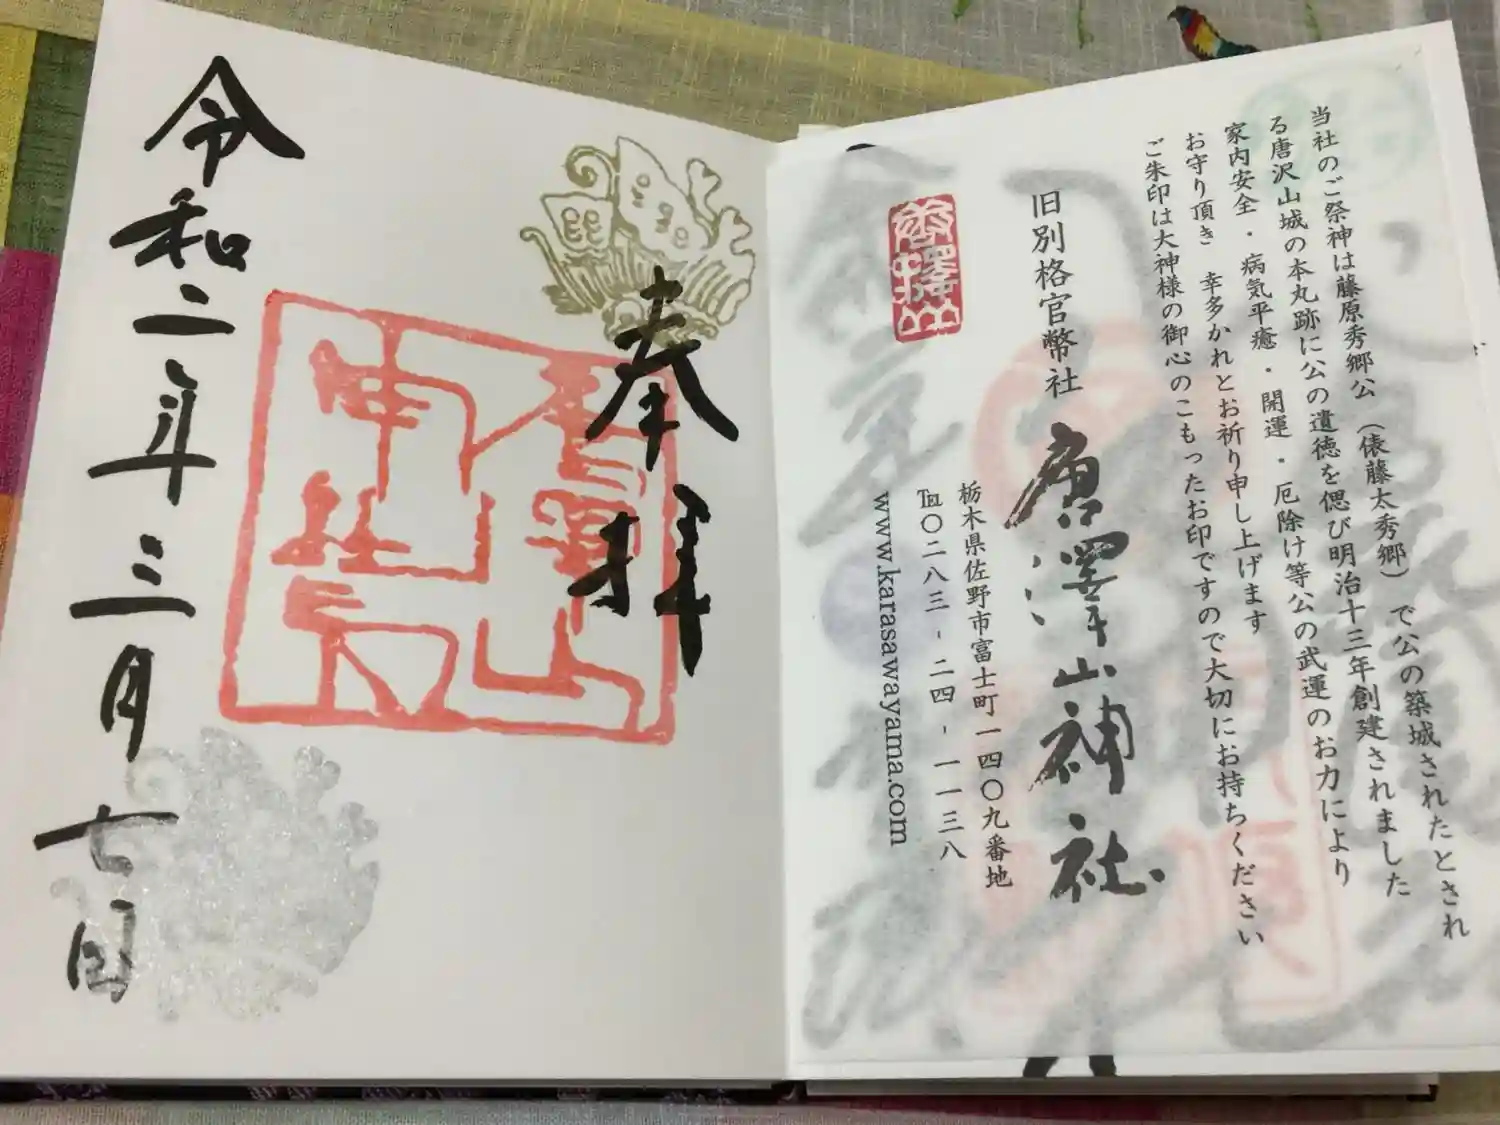 当社のご祭神は藤原秀郷公（俵藤太秀郷）で公の築城されたとされ
る唐沢山城の本丸跡に公の遺徳を偲び明治十三年創建されました
家内安全・病気平癒・開運・厄除け等公の武運のお力により
お守り頂き　幸多かれとお祈り申し上げます
ご朱印は大神様の御心のこもったお印ですので大切にお持ちください
旧別格官幣社　唐澤山神社
唐澤山
栃木県佐野市富士町一四〇九番地
℡〇二八三-二四-一一三八
www.karasawayama.com
奉拝
唐澤山神社
令和二年三月七日